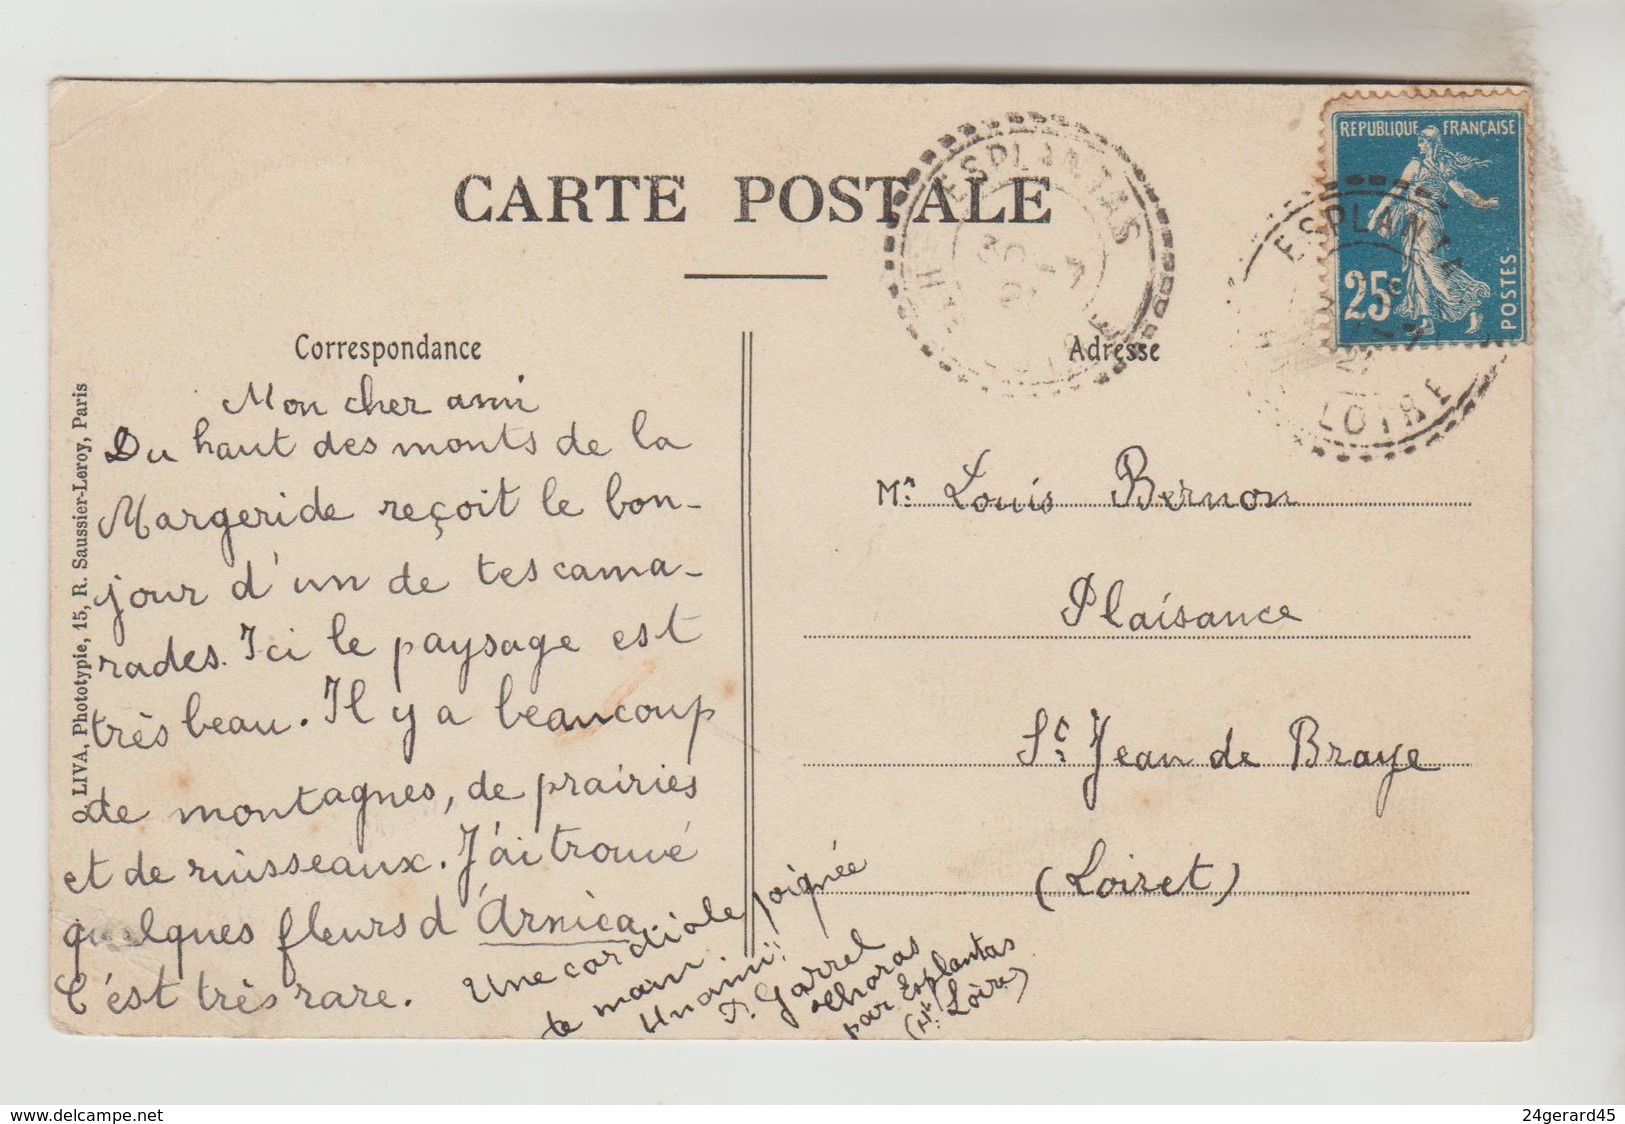 CARTE POSTALE
ESPLANTAS
30 -7
LOIRE
REPUBLIQUE FRANÇAISE
25c
POSTES
ESPLANTA
LOIRE
Correspondance
Adresse
O. LIVA, Phototypie, 15, R. Saussier-Leroy, Paris
Mon cher ami
Du haut des monts de la
Margeride reçoit le bon-
jour d'un de tes cama-
rades. Ici le paysage est
très beau. Il y a beaucoup
de montagnes, de prairies
et de ruisseaux. J'ai trouvé
quelques fleurs d'Arnica.
C'est très rare.
Une cordiale poignée
de main.
Un ami:
P. Garrel
par Esplantas
(Hte Loire)
Mr. Louis Bernon
Plaisance
St. Jean de Braye
(Loiret)
www.delcampe.net
24gerard45